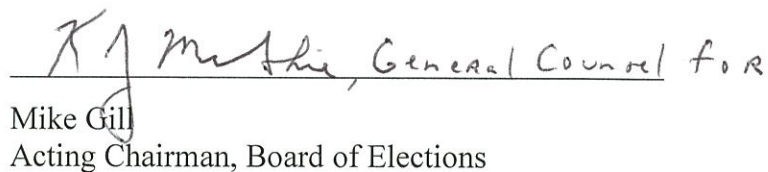 General Counsel for
Mike Gill
Acting Chairman, Board of Elections